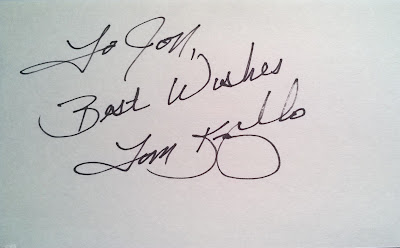 To Jon,
Best Wishes
Tom